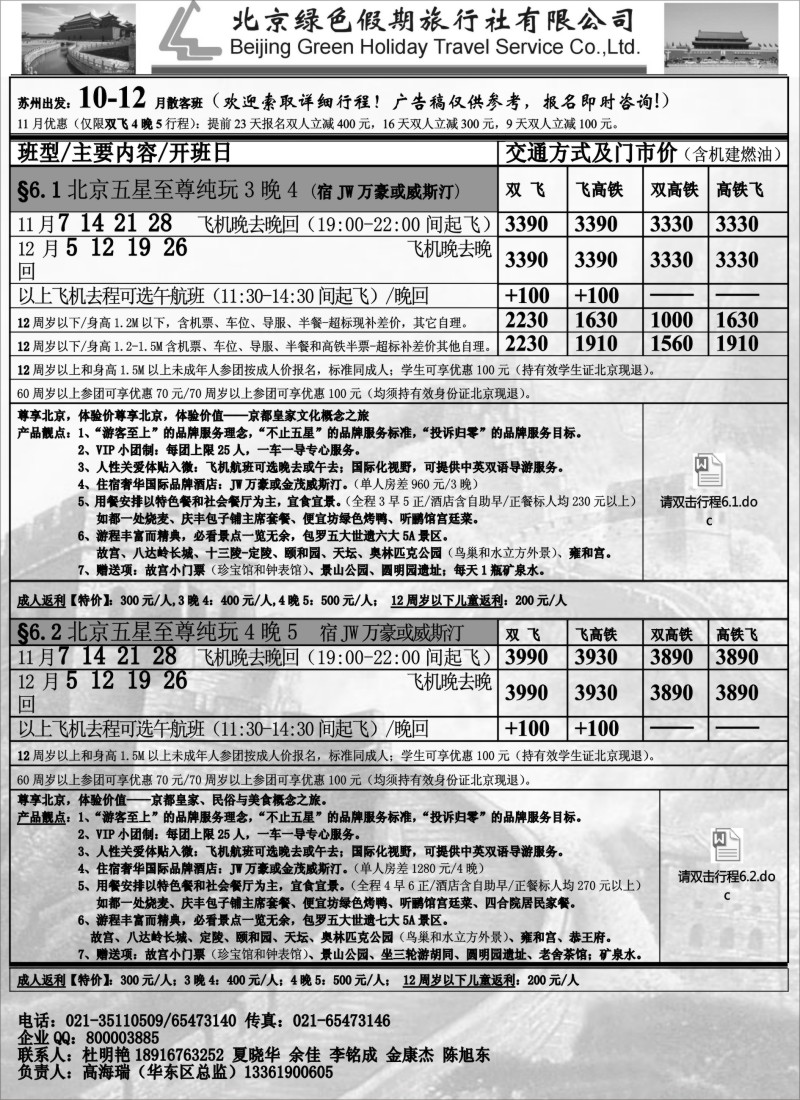 北京绿色假期旅行社有限公司
Beijing Green Holiday Travel Service Co.,Ltd.
苏州出发：10-12 月散客班（欢迎索取详细行程！广告稿仅供参考，报名即时咨询!）
11 月优惠（仅限双飞 4 晚 5 行程）：提前 23 天报名双人立减 400 元，16 天双人立减 300 元，9 天双人立减 100 元。
班型/主要内容/开班日 交通方式及门市价（含机建燃油）
§6.1 北京五星至尊纯玩 3 晚 4 （宿 JW 万豪或威斯汀） 双 飞 飞高铁 双高铁 高铁飞
11 月 7 14 21 28 飞机晚去晚回（19:00-22:00 间起飞） 3390 3390 3330 3330
12 月 5 12 19 26 飞机晚去晚
回 3390 3390 3330 3330
以上飞机去程可选午航班（11:30-14:30 间起飞）/晚回 +100 +100 —— ——
12 周岁以下/身高 1.2M 以下，含机票、车位、导服、半餐-超标现补差价，其它自理。 2230 1630 1000 1630
12 周岁以下/身高 1.2-1.5M 含机票、车位、导服、半餐和高铁半票-超标补差价其他自理。 2230 1910 1560 1910
12 周岁以上和身高 1.5M 以上未成年人参团按成人价报名，标准同成人；学生可享优惠 100 元（持有效学生证北京现退）。
60 周岁以上参团可享优惠 70 元/70 周岁以上参团可享优惠 100 元（均须持有效身份证北京现退）。
尊享北京，体验价尊享北京，体验价值——京都皇家文化概念之旅
产品靓点：1、“游客至上”的品牌服务理念，“不止五星”的品牌服务标准，“投诉归零”的品牌服务目标。
2、VIP 小团制：每团上限 25 人，一车一导专心服务。
3、人性关爱体贴入微：飞机航班可选晚去或午去；国际化视野，可提供中英双语导游服务。
4、住宿奢华国际品牌酒店：JW 万豪或金茂威斯汀。（单人房差 960 元/3 晚）
5、用餐安排以特色餐和社会餐厅为主，宜食宜景。（全程 3 早 5 正/酒店含自助早/正餐标人均 230 元以上）
如都一处烧麦、庆丰包子铺主席套餐、便宜坊绿色烤鸭、听鹂馆宫廷菜。
6、游程丰富而精典，必看景点一览无余，包罗五大世遗六大 5A 景区。
故宫、八达岭长城、十三陵-定陵、颐和园、天坛、奥林匹克公园（鸟巢和水立方外景）、雍和宫。
7、赠送项：故宫小门票（珍宝馆和钟表馆）、景山公园、圆明园遗址；每天 1 瓶矿泉水。
请双击行程6.1.do
c
成人返利【特价】：300 元/人,3 晚 4：400 元/人,4 晚 5：500 元/人； 12 周岁以下儿童返利：200 元/人
§6.2 北京五星至尊纯玩 4 晚 5 宿 JW 万豪或威斯汀 双 飞 飞高铁 双高铁 高铁飞
11 月 7 14 21 28 飞机晚去晚回（19:00-22:00 间起飞） 3990 3930 3890 3890
12 月 5 12 19 26 飞机晚去晚
回 3990 3930 3890 3890
以上飞机去程可选午航班（11:30-14:30 间起飞）/晚回 +100 +100 —— ——
12 周岁以上和身高 1.5M 以上未成年人参团按成人价报名，标准同成人；学生可享优惠 100 元（持有效学生证北京现退）。
60 周岁以上参团可享优惠 70 元/70 周岁以上参团可享优惠 100 元（均须持有效身份证北京现退）。
尊享北京，体验价值——京都皇家、民俗与美食概念之旅。
产品靓点：1、“游客至上”的品牌服务理念，“不止五星”的品牌服务标准，“投诉归零”的品牌服务目标。
2、VIP 小团制：每团上限 25 人，一车一导专心服务。
3、人性关爱体贴入微：飞机航班可选晚去或午去；国际化视野，可提供中英双语导游服务。
4、住宿奢华国际品牌酒店：JW 万豪或金茂威斯汀。（单人房差 1280 元/4 晚）
5、用餐安排以特色餐和社会餐厅为主，宜食宜景。（全程 4 早 6 正/酒店含自助早/正餐标人均 270 元以上）
如都一处烧麦、庆丰包子铺主席套餐、便宜坊绿色烤鸭、听鹂馆宫廷菜、四合院居民家餐。
6、游程丰富而精典，必看景点一览无余，包罗五大世遗七大 5A 景区。
故宫、八达岭长城、定陵、颐和园、天坛、奥林匹克公园（鸟巢和水立方外景）、雍和宫、恭王府。
7、赠送项：故宫小门票（珍宝馆和钟表馆）、景山公园、坐三轮游胡同、圆明园遗址、老舍茶馆；矿泉水。
请双击行程6.2.do
c
成人返利【特价】：300 元/人；3 晚 4：400 元/人；4 晚 5：500 元/人； 12 周岁以下儿童返利：200 元/人
电话：021-35110509/65473140 传真：021-65473146
企业 QQ：800003885
联系人：杜明艳 18916763252 夏晓华 余佳 李铭成 金康杰 陈旭东
负责人：高海瑞（华东区总监）13361900605